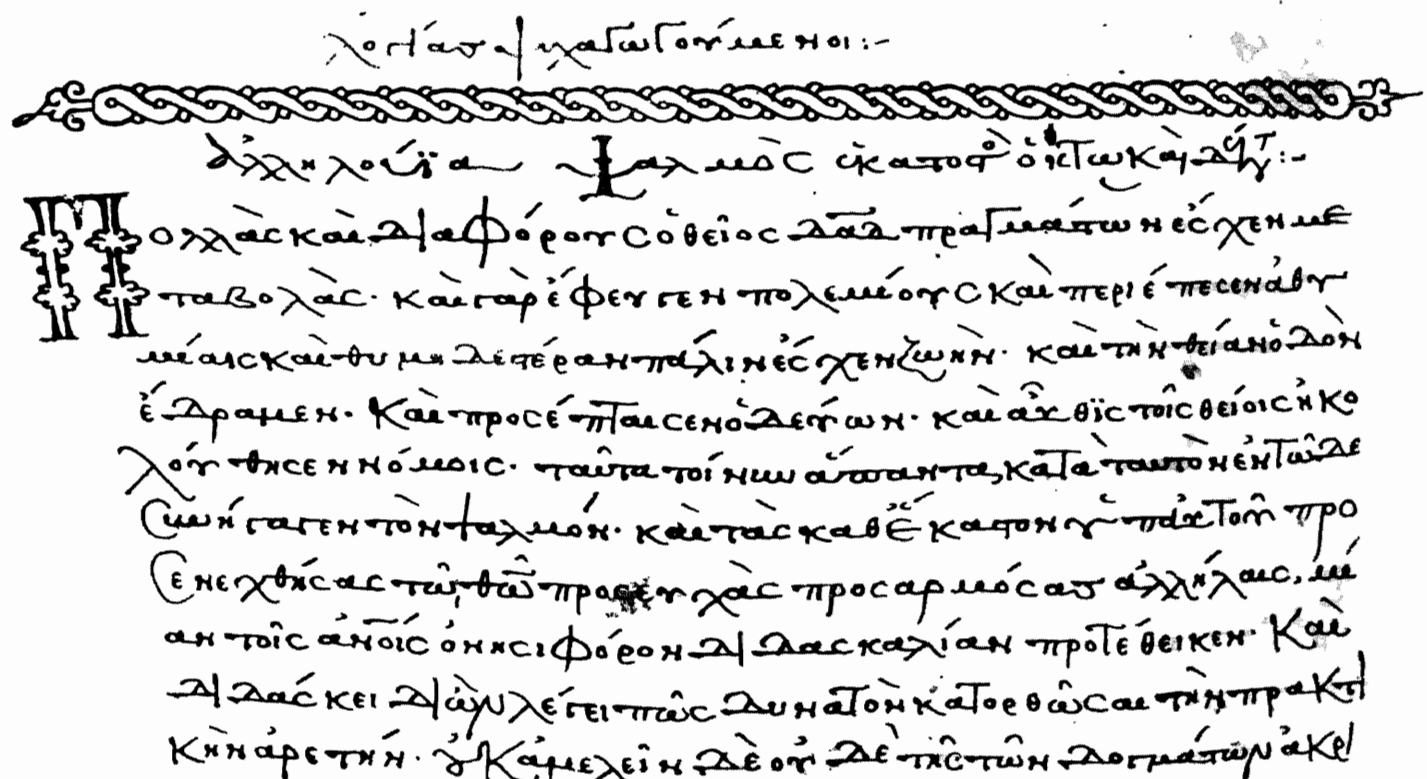 ψυχαγωγούμενοι:-
ἀλληλούϊα ψαλμὸς ἑκατοστὸ ὀκτωκαὶδέκτ:-
Πολλὰς καὶ διαφόρους ὁ θεῖος δαδ πραγμάτων ἔσχεν με
ταβολάς· καὶ γὰρ ἔφευγεν πολεμίους καὶ περιέπεσεν ἀθυ
μίαις καὶ θυμηδεστέραν πάλιν ἔσχεν ζωὴν· καὶ τὴν θείαν ὁδὸν
ἔδραμεν· καὶ προσέπταισεν ὁδεύων· καὶ αὖθϊς τοῖς θείοις ἠκο
λούθησεν νόμοις· ταῦτα τοίνυν ἅπαντα, κατὰ ταυτὸν ἐν τῶδε
συνήγαγεν τὸν ψαλμόν· καὶ τὰς καθ ἕκαστον ὑπ αὐτοῦ προ
σενεχθήσας τῶ θῶ προσευχὰς προσαρμόσας ἀλλήλαις, μί
αν τοῖς ἀνοῖς ὀνησιφόρον διδασκαλίαν προτέθεικεν· καὶ
διδάσκει δι ὧν λέγει πῶς δυνατὸν κατορθῶσαι τὴν πρακτι
κὴν ἀρετήν· οὐκ ἀμελεῖν δὲ οὐδὲ τῆς τῶν δογμάτων ἀκρι